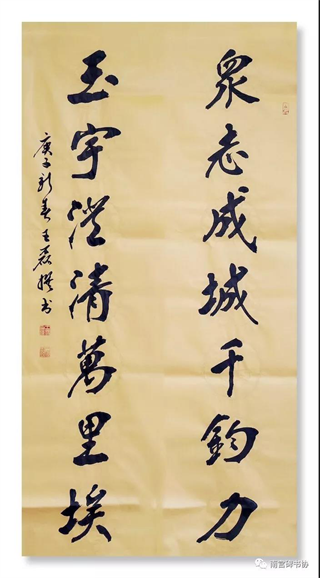 眾志成城千鈞力
玉宇澄清萬里埃
庚子新春王磊撰书
南宫碑书协